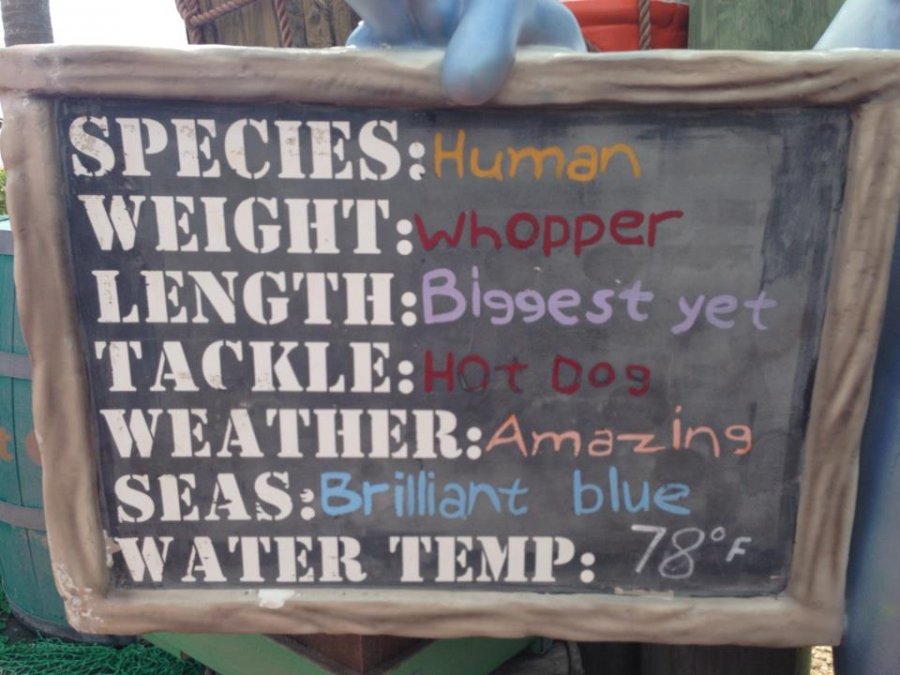 SPECIES: Human
WEIGHT: Whopper
LENGTH: Biggest yet
TACKLE: Hot Dog
WEATHER: Amazing
SEAS: Brilliant blue
WATER TEMP: 78°F